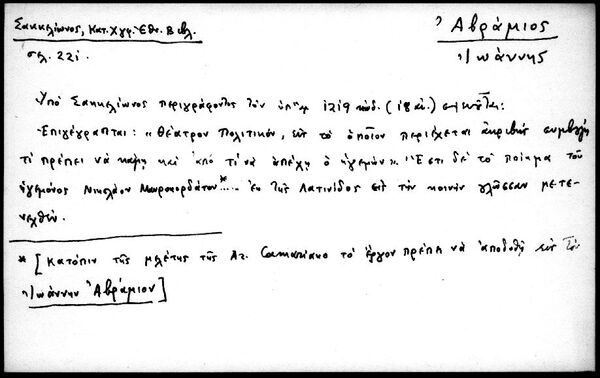 Σακκελίωνος, Κατ. Χγφ. Ἐθν. Βιβλ.
σελ. 221.
Ἀβράμιος
Ἰωάννης
Ὑπὸ Σακκελίωνος περιγράφοντος τὸν ὑπ' ἀρ. 1219 κώδ. (18 αἰ.)
Ἐπιγέγραπται: «Θέατρον Πολιτικόν, εἰς τὸ ὁποῖον περιέχεται ἀκριβὴς συμβουλὴ
τί πρέπει νὰ κάμῃ καὶ ἀπὸ τί νὰ ἀπέχῃ ὁ ἡγεμών». "Ἔστι δὲ τὸ ποίημα τοῦ
ἡγεμόνος Νικολάου Μαυροκορδάτου*.... ἐκ τῆς Λατινίδος εἰς τὴν κοινὴν γλῶσσαν μετε-
νεχθέν.
* [Κατόπιν τῆς μελέτης τῆς Ar. Camariano τὸ ἔργον πρέπει νὰ ἀποδοθῇ εἰς τὸν
Ἰωάννην Ἀβράμιον]